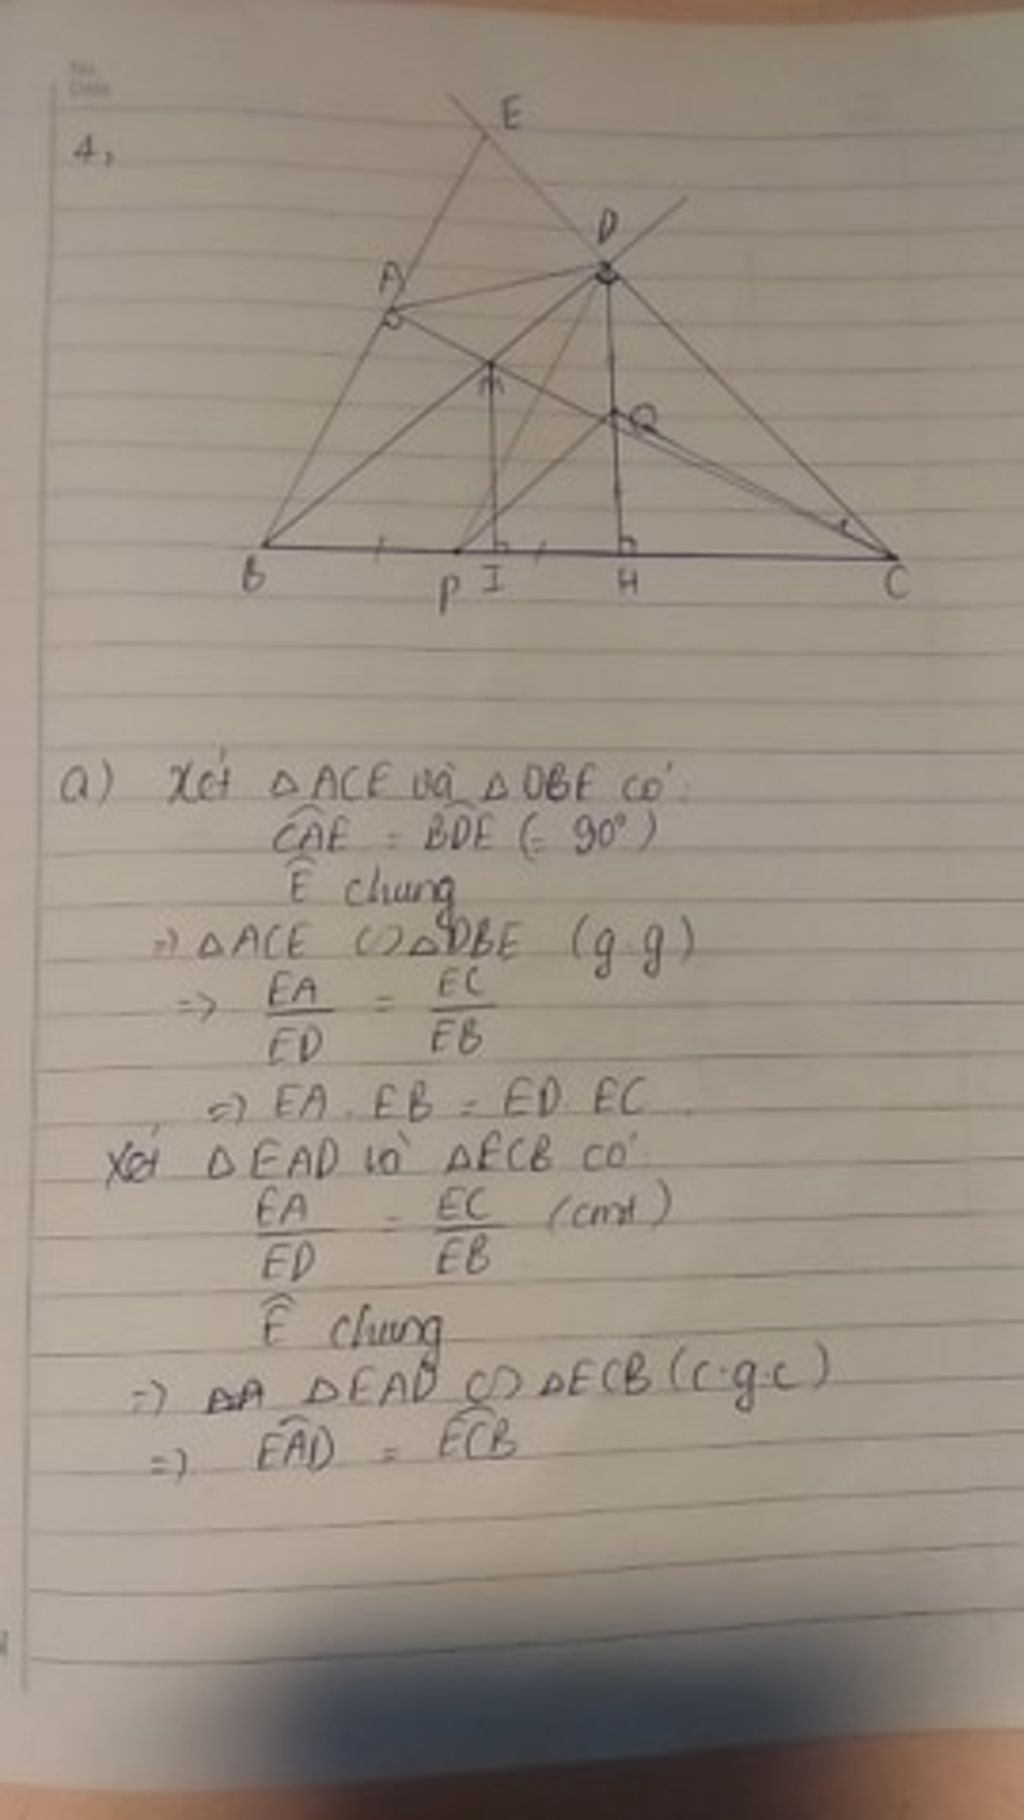 No.
Date
4,
E
D
A
M
Q
B
P I H C
a) Xét △ACE và △DBE có:
CAE = BDE (= 90°)
E chung
=> △ACE ∽ △DBE (g.g)
=> EA/ED = EC/EB
=> EA . EB = ED . EC
Xét △EAD và △ECB có:
EA/ED = EC/EB (cmt)
Ê chung
=> △EAD ∽ △ECB (c.g.c)
=> EAD = ECB